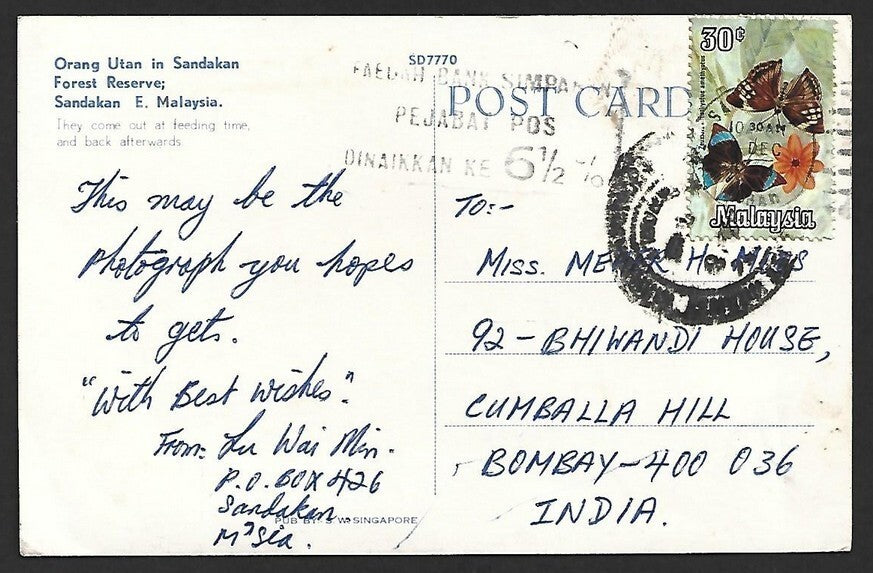 Orang Utan in Sandakan
Forest Reserve;
Sandakan E. Malaysia.
They come out at feeding time,
and back afterwards.
SD7770
POST CARD
FAEDAH BANK SIMPANAN
PEJABAT POS
DINAIKKAN KE 6½ %
30¢
10 30 AM
DEC
Malaysia
This may be the
photograph you hopes
to gets.
"With Best wishes".
From: Lu Wai Min.
P.O. BOX 426
Sandakan
M'sia.
PUB BY S. W. SINGAPORE
TO:-
MISS.
92-BHIWANDI HOUSE,
CUMBALLA HILL
BOMBAY-400 036
INDIA.